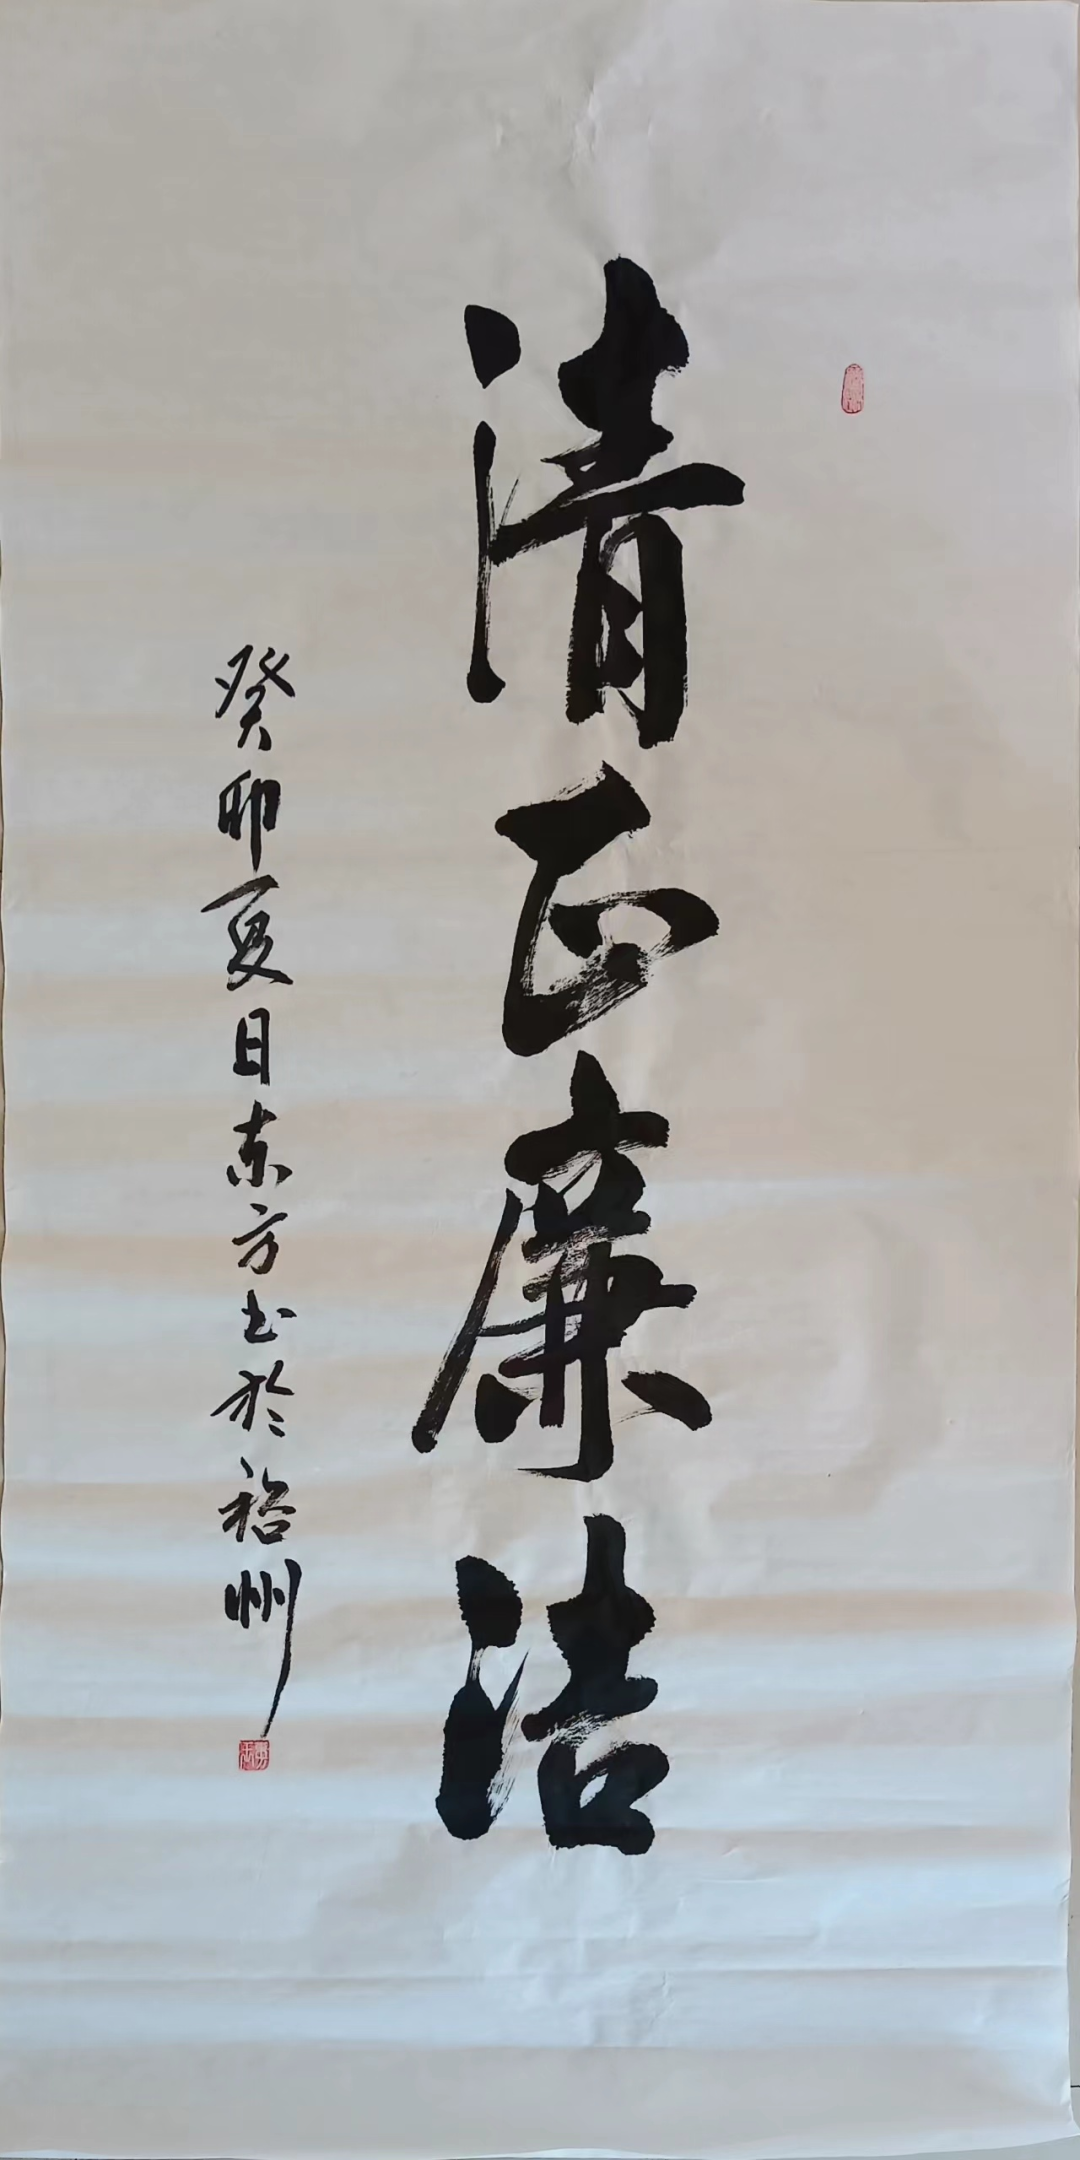 清正廉洁
癸卯夏日东方书於裕州